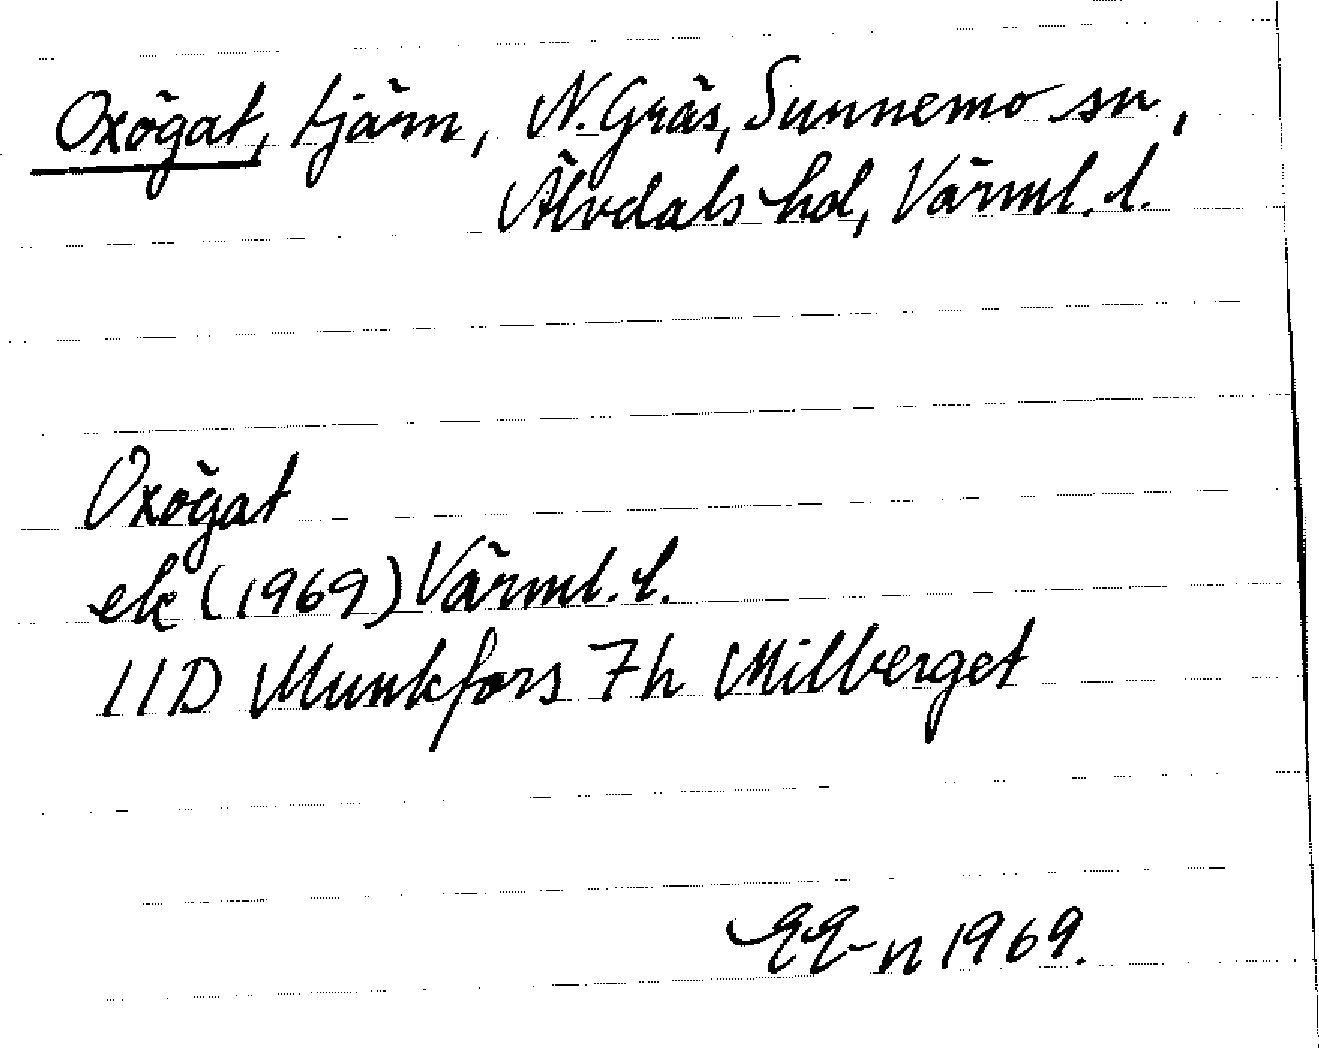 Oxögat, tjärn, N. Gräs, Sunnemo sn,
Älvdals hd, Värml. l.
Oxögat
ek (1969) Värml. l.
11D Munkfors 7h Milberget
EE-n 1969.